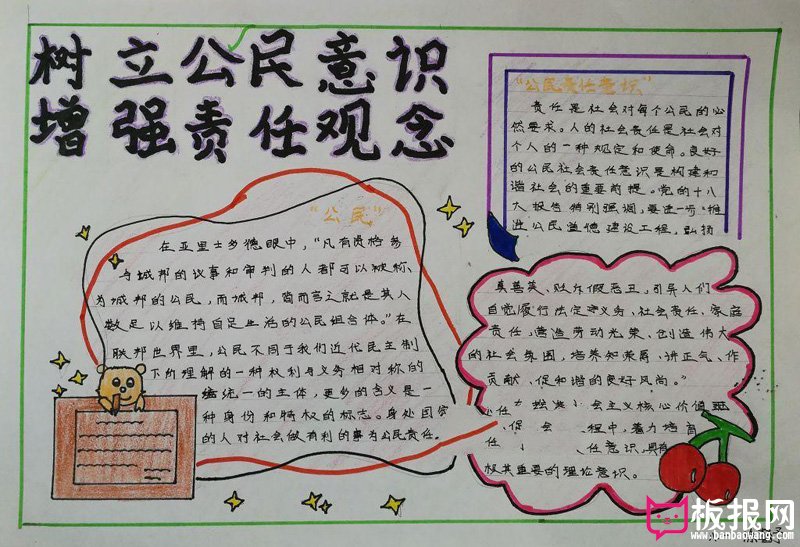 树立公民意识
增强责任观念
“公民”
在亚里士多德眼中，“凡有资格参
与城邦的议事和审判的人都可以被称
为城邦的公民，而城邦，简而言之就是其人
数足以维持自足生活的公民组合体。”在
联邦世界里，公民不同于我们近代民主制
下所理解的一种权利与义务相对称的
统一的主体，更多的含义是一
种身份和特权的标志。身处国家
的人对社会做有利的事为公民责任。
“公民责任意识”
责任是社会对每个公民的必
然要求。人的社会责任是社会对
个人的一种规定和使命。良好
的公民社会责任意识是构建和
谐社会的重要前提。党的十八
大报告特别强调，要进一步“推
进公民道德建设工程，弘扬
真善美，贬斥假恶丑，引导人们
自觉履行法定义务，社会责任、家庭
责任，营造劳动光荣、创造伟大
的社会氛围，培养知荣辱、讲正气、作
贡献、促和谐的良好风尚。”
任 会主义核心价值
促 会 程中，着力培育
任 任意识，具有
极其重要的理论意识。
板报网
www.banbaowang.com